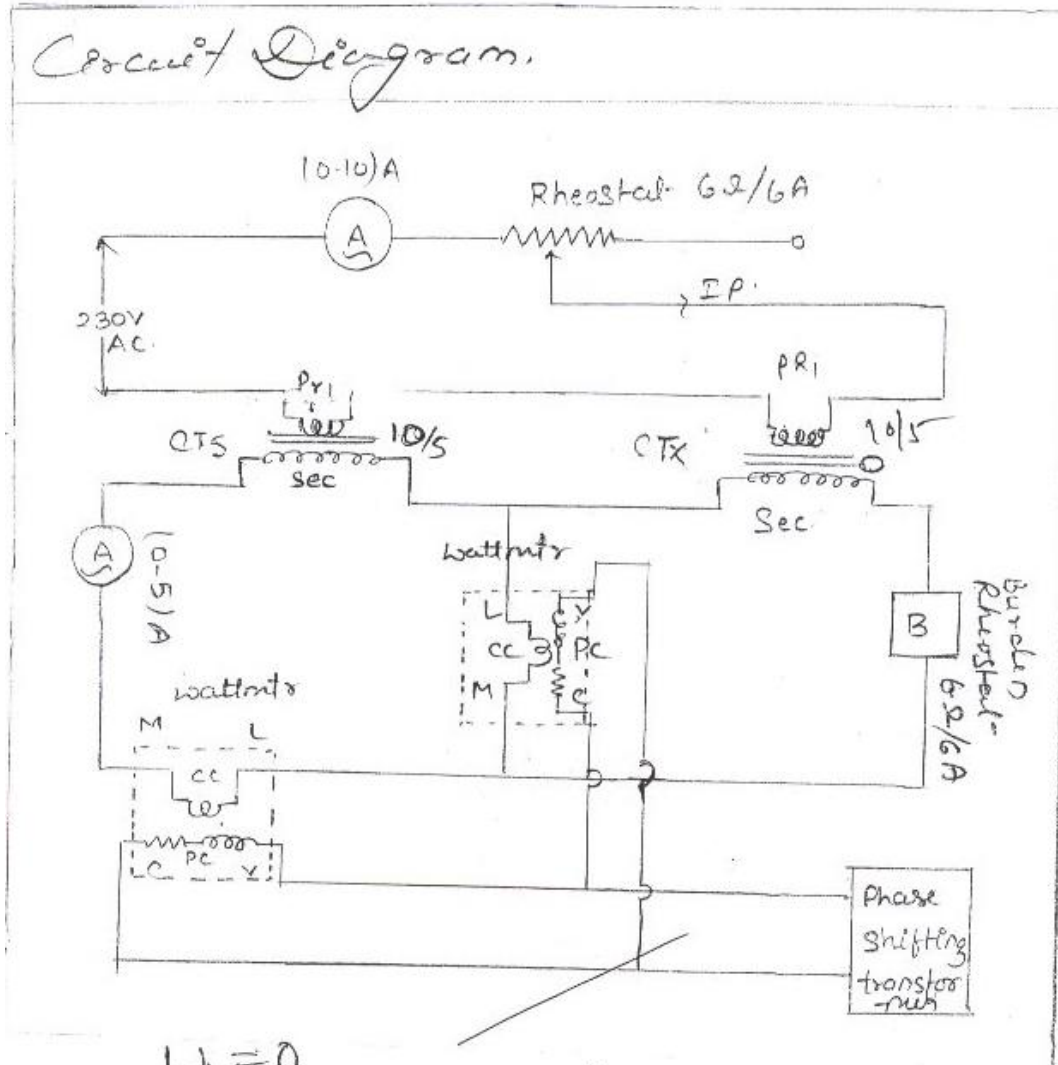 Circuit Diagram.
(0-10)A
Rheostat 6Ω/6A
A
IP.
230V
AC.
Pr1
PR1
CTS
10/5
CTX
10/5
Sec
Sec
A
(0-5)A
wattmtr
L
V
CC
PC
M
C
B
Burden
Rheostat
6Ω/6A
wattmtr
M
L
CC
PC
C
V
Phase
Shifting
transfor
-mer